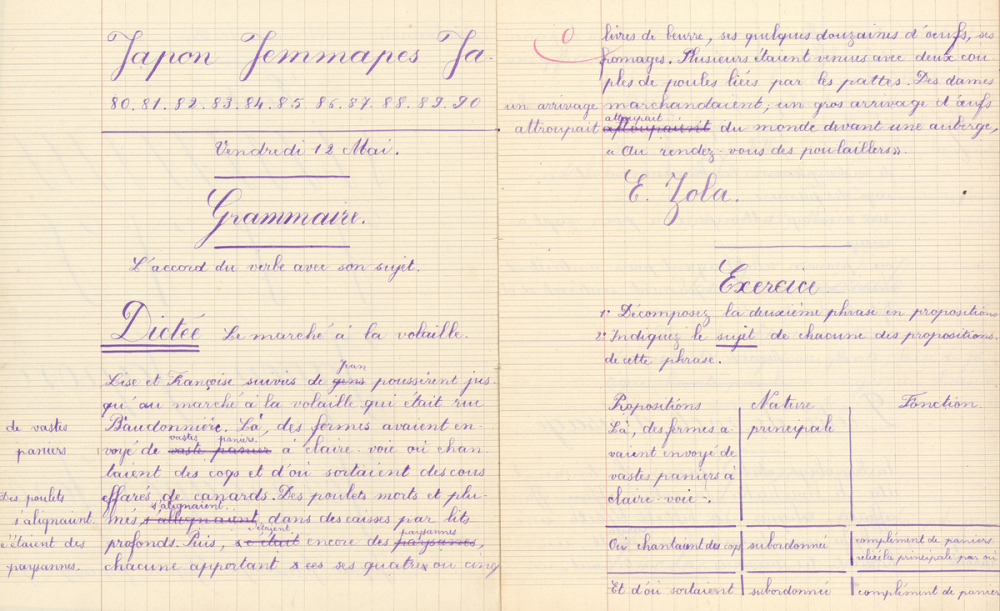 Japon Jemmapes Ja-
80. 81. 82. 83. 84. 85 86. 87. 88. 89. 90
Vendredi 12 Mai.
Grammaire.
L'accord du verbe avec son sujet.
Dictée Le marché à la volaille.
Jean
Lise et Françoise suivies de gens poussèrent jus-
qu'au marché à la volaille qui était rue
de vastes Baudonnière. Là, des fermes avaient en-
vastes paniers
paniers voyé de vaste panier à claire-voie où chan-
taient des coqs et d'où sortaient des cous
des poulets effarés de canards. Des poulets morts et plu-
s'alignaient
s'alignaient. més, s'allegnaient dans des caisses par lits
c'étaient paysannes
c'étaient des profonds. Puis, c'était encore des paysanes,
paysannes. chacune apportant ses quatre ou cinq
0
livres de beurre, ses quelques douzaines d'œufs, ses
fromages. Plusieurs étaient venues avec deux cou
ples de poules liées par les pattes. Des dames
un arrivage marchandaient; un gros arrivage d'œufs
attroupait
attroupait du monde devant une auberge,
« Au rendez-vous des poulaillers».
E. Zola.
Exercice
1° Décomposez la deuxième phrase en propositions
2° Indiquez le sujet de chacune des propositions
de cette phrase.
Propositions Nature Fonction
Là, des fermes a- principale
vaient envoyé de
vastes paniers à
claire-voie-.
Où chantaient des coqs subordonnée complément de paniers
relié à la principale par où
Et d'où sortaient subordonnée complément de panier